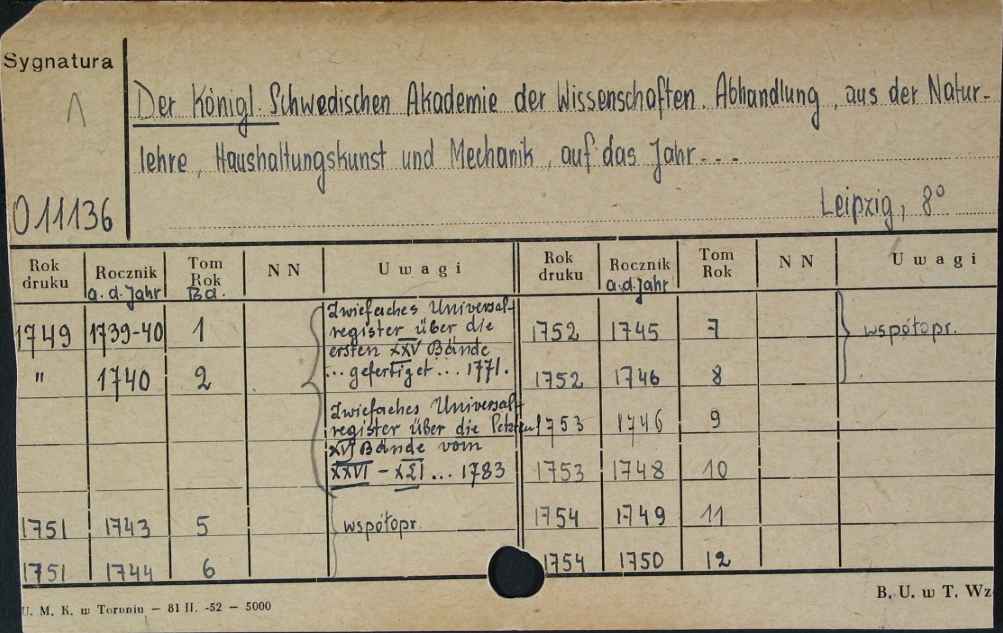 Sygnatura
Λ
Der Königl. Schwedischen Akademie der Wissenschaften. Abhandlung, aus der Natur-
lehre, Haushaltungskunst und Mechanik, auf das Jahr...
O 11136
Leipzig, 8°
Rok druku Rocznik a.d. Jahr Tom Rok Bd. NN Uwagi Rok druku Rocznik a.d. Jahr Tom Rok NN Uwagi
Zwiefaches Universal-
register über die
ersten XXV Bände
... gefertiget ... 1771.
Zwiefaches Universal-
register über die letzten
XVI Bände vom
XXVI - XLI ... 1783
1749 1739-40 1
" 1740 2
1751 1743 5 współopr.
1751 1744 6
1752 1745 7 współopr.
1752 1746 8
1753 1746 9
1753 1748 10
1754 1749 11
1754 1750 12
U. M. K. w Toruniu – 81 II. -52 – 5000
B. U. w T. Wz